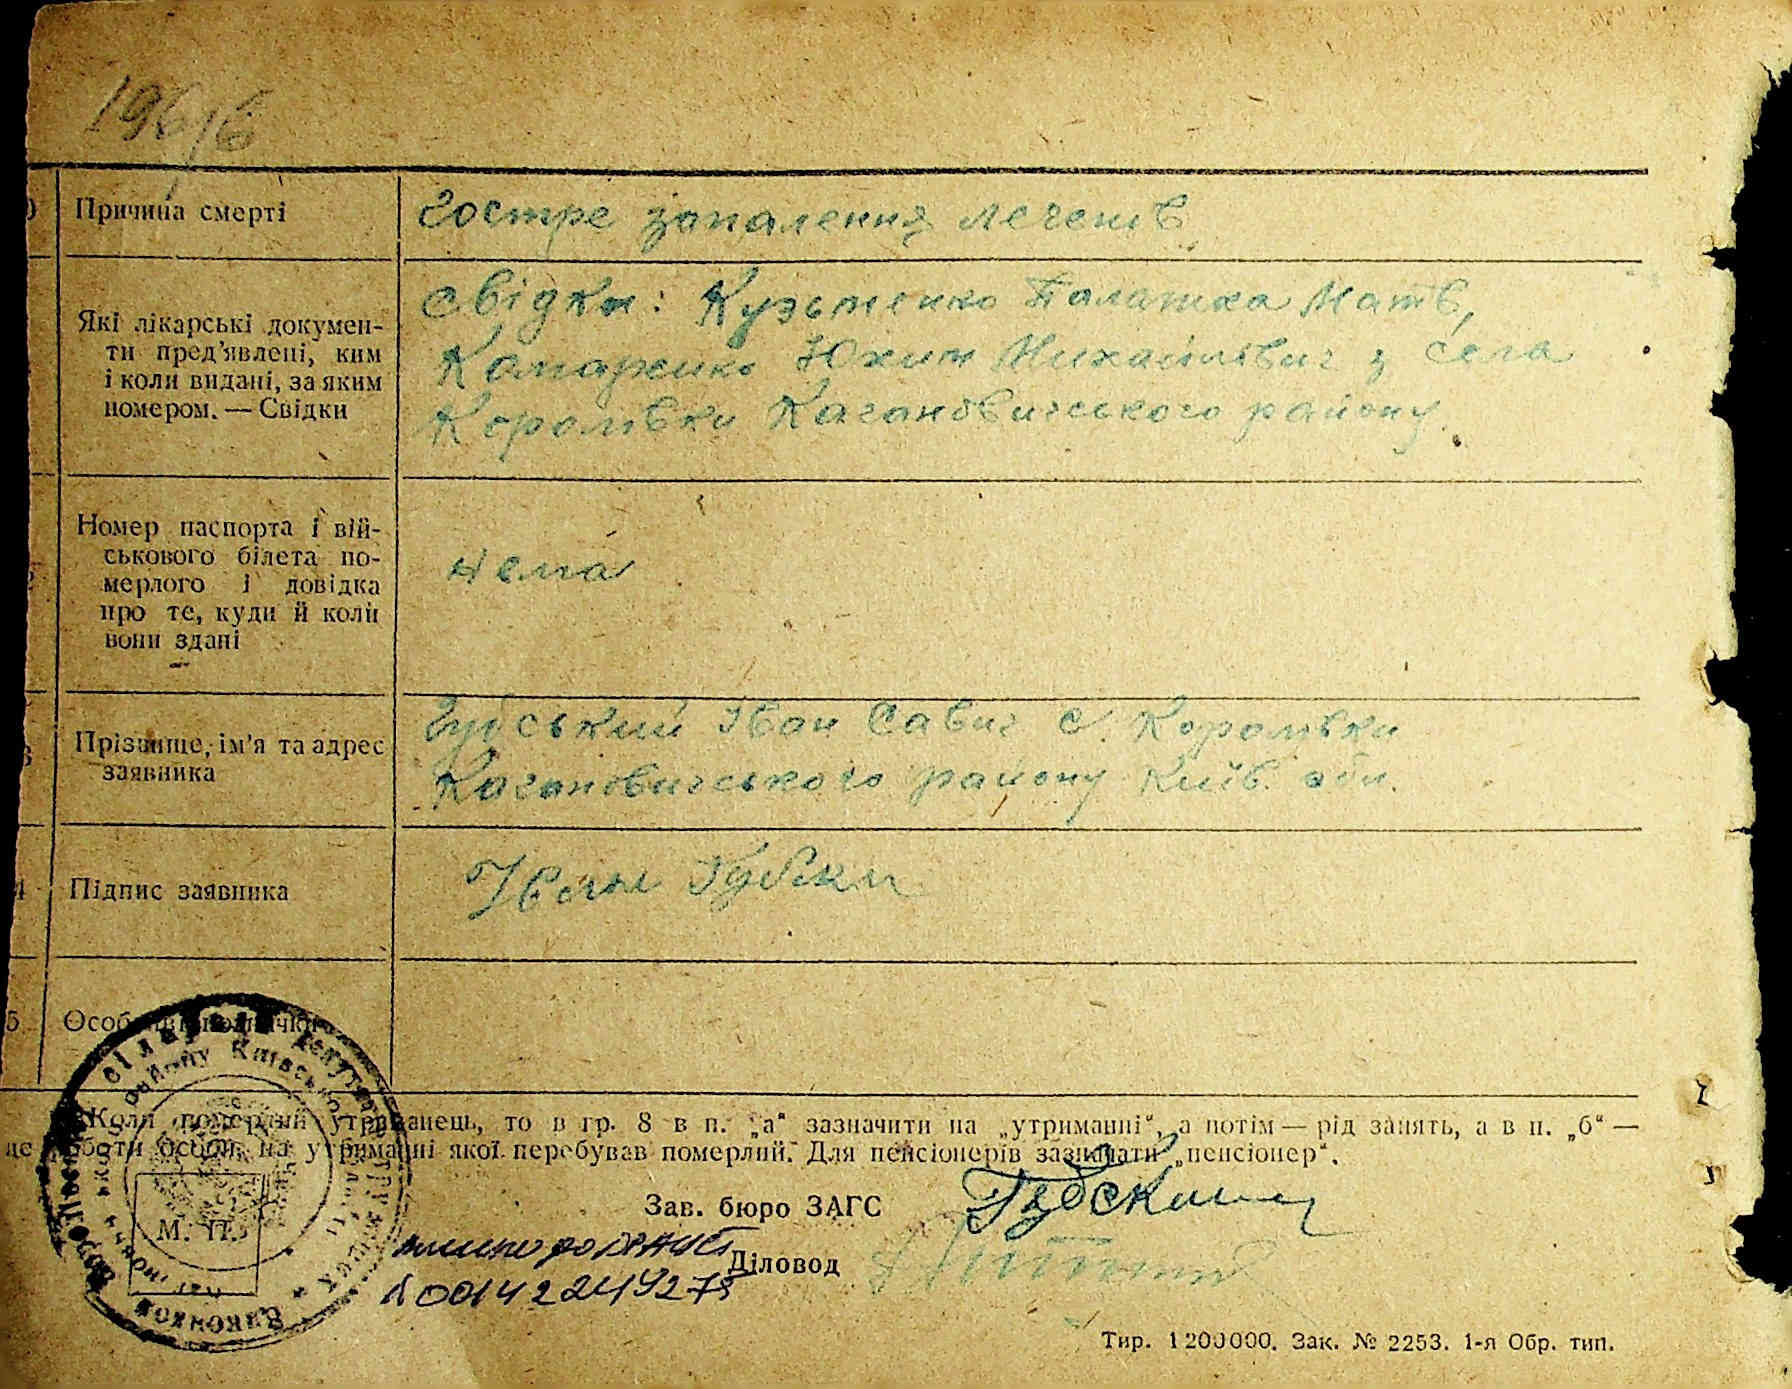 1966
Причина смерті
Гостре запалення легенів
Які лікарські документи пред'явлені, ким
і коли видані, за яким
номером. — Свідки
Свідки: Кузьменко ПалажкаМатв,
Юхим Михайлович з села
Королівки Кагановичського району
Номер паспорта і військового білета померлого і довідка
про те, куди й коли
вони здані
нема
Прізвище, ім'я та адрес
заявника
Губський Іван Савич с. Королівки
Кагановичського району Київ. обл.
4 Підпис заявника
Іван
5
Коли померлий утриманець, то в гр. 8 в п. „а“ зазначити на „утриманні“, а потім — рід занять, а в п. „б“ —
роботи особи, на утриманні якої перебував померлий. Для пенсіонерів зазначати „пенсіонер“.
М. П.
Зав. бюро ЗАГС
Діловод
Тир. 1200000. Зак. № 2253. 1-я Обр. тип.